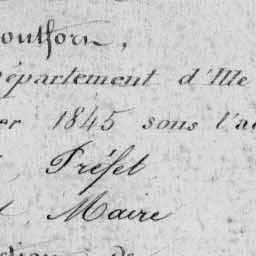 Montfort,
Département d'Ille
er 1845 sous l'a
Préfet
Maire
de